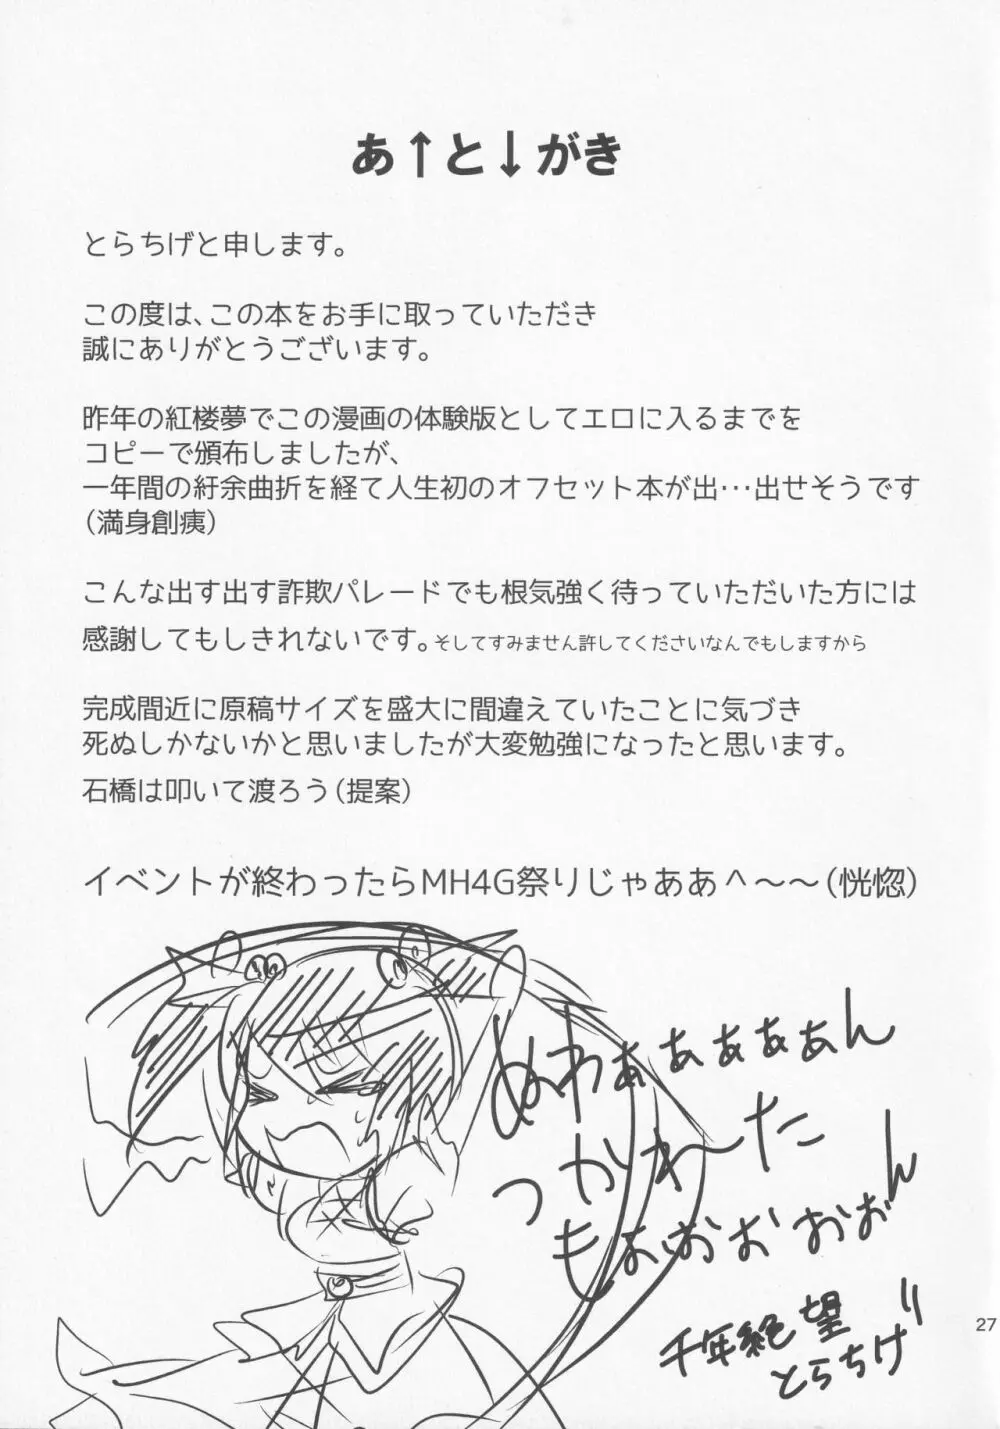 あ↑と↓がき
とらちげと申します。
この度は、この本をお手に取っていただき
誠にありがとうございます。
昨年の紅楼夢でこの漫画の体験版としてエロに入るまでを
コピーで頒布しましたが、
一年間の紆余曲折を経て人生初のオフセット本が出…出せそうです
（満身創痍）
こんな出す出す詐欺パレードでも根気強く待っていただいた方には
感謝してもしきれないです。そしてすみません許してくださいなんでもしますから
完成間近に原稿サイズを盛大に間違えていたことに気づき
死ぬしかないかと思いましたが大変勉強になったと思います。
石橋は叩いて渡ろう（提案）
イベントが終わったらMH4G祭りじゃああ＾～～（恍惚）
ぬわぁぁぁぁぁん
つかれーた
もぉおおおおん
千年絶望
とらちげ
27